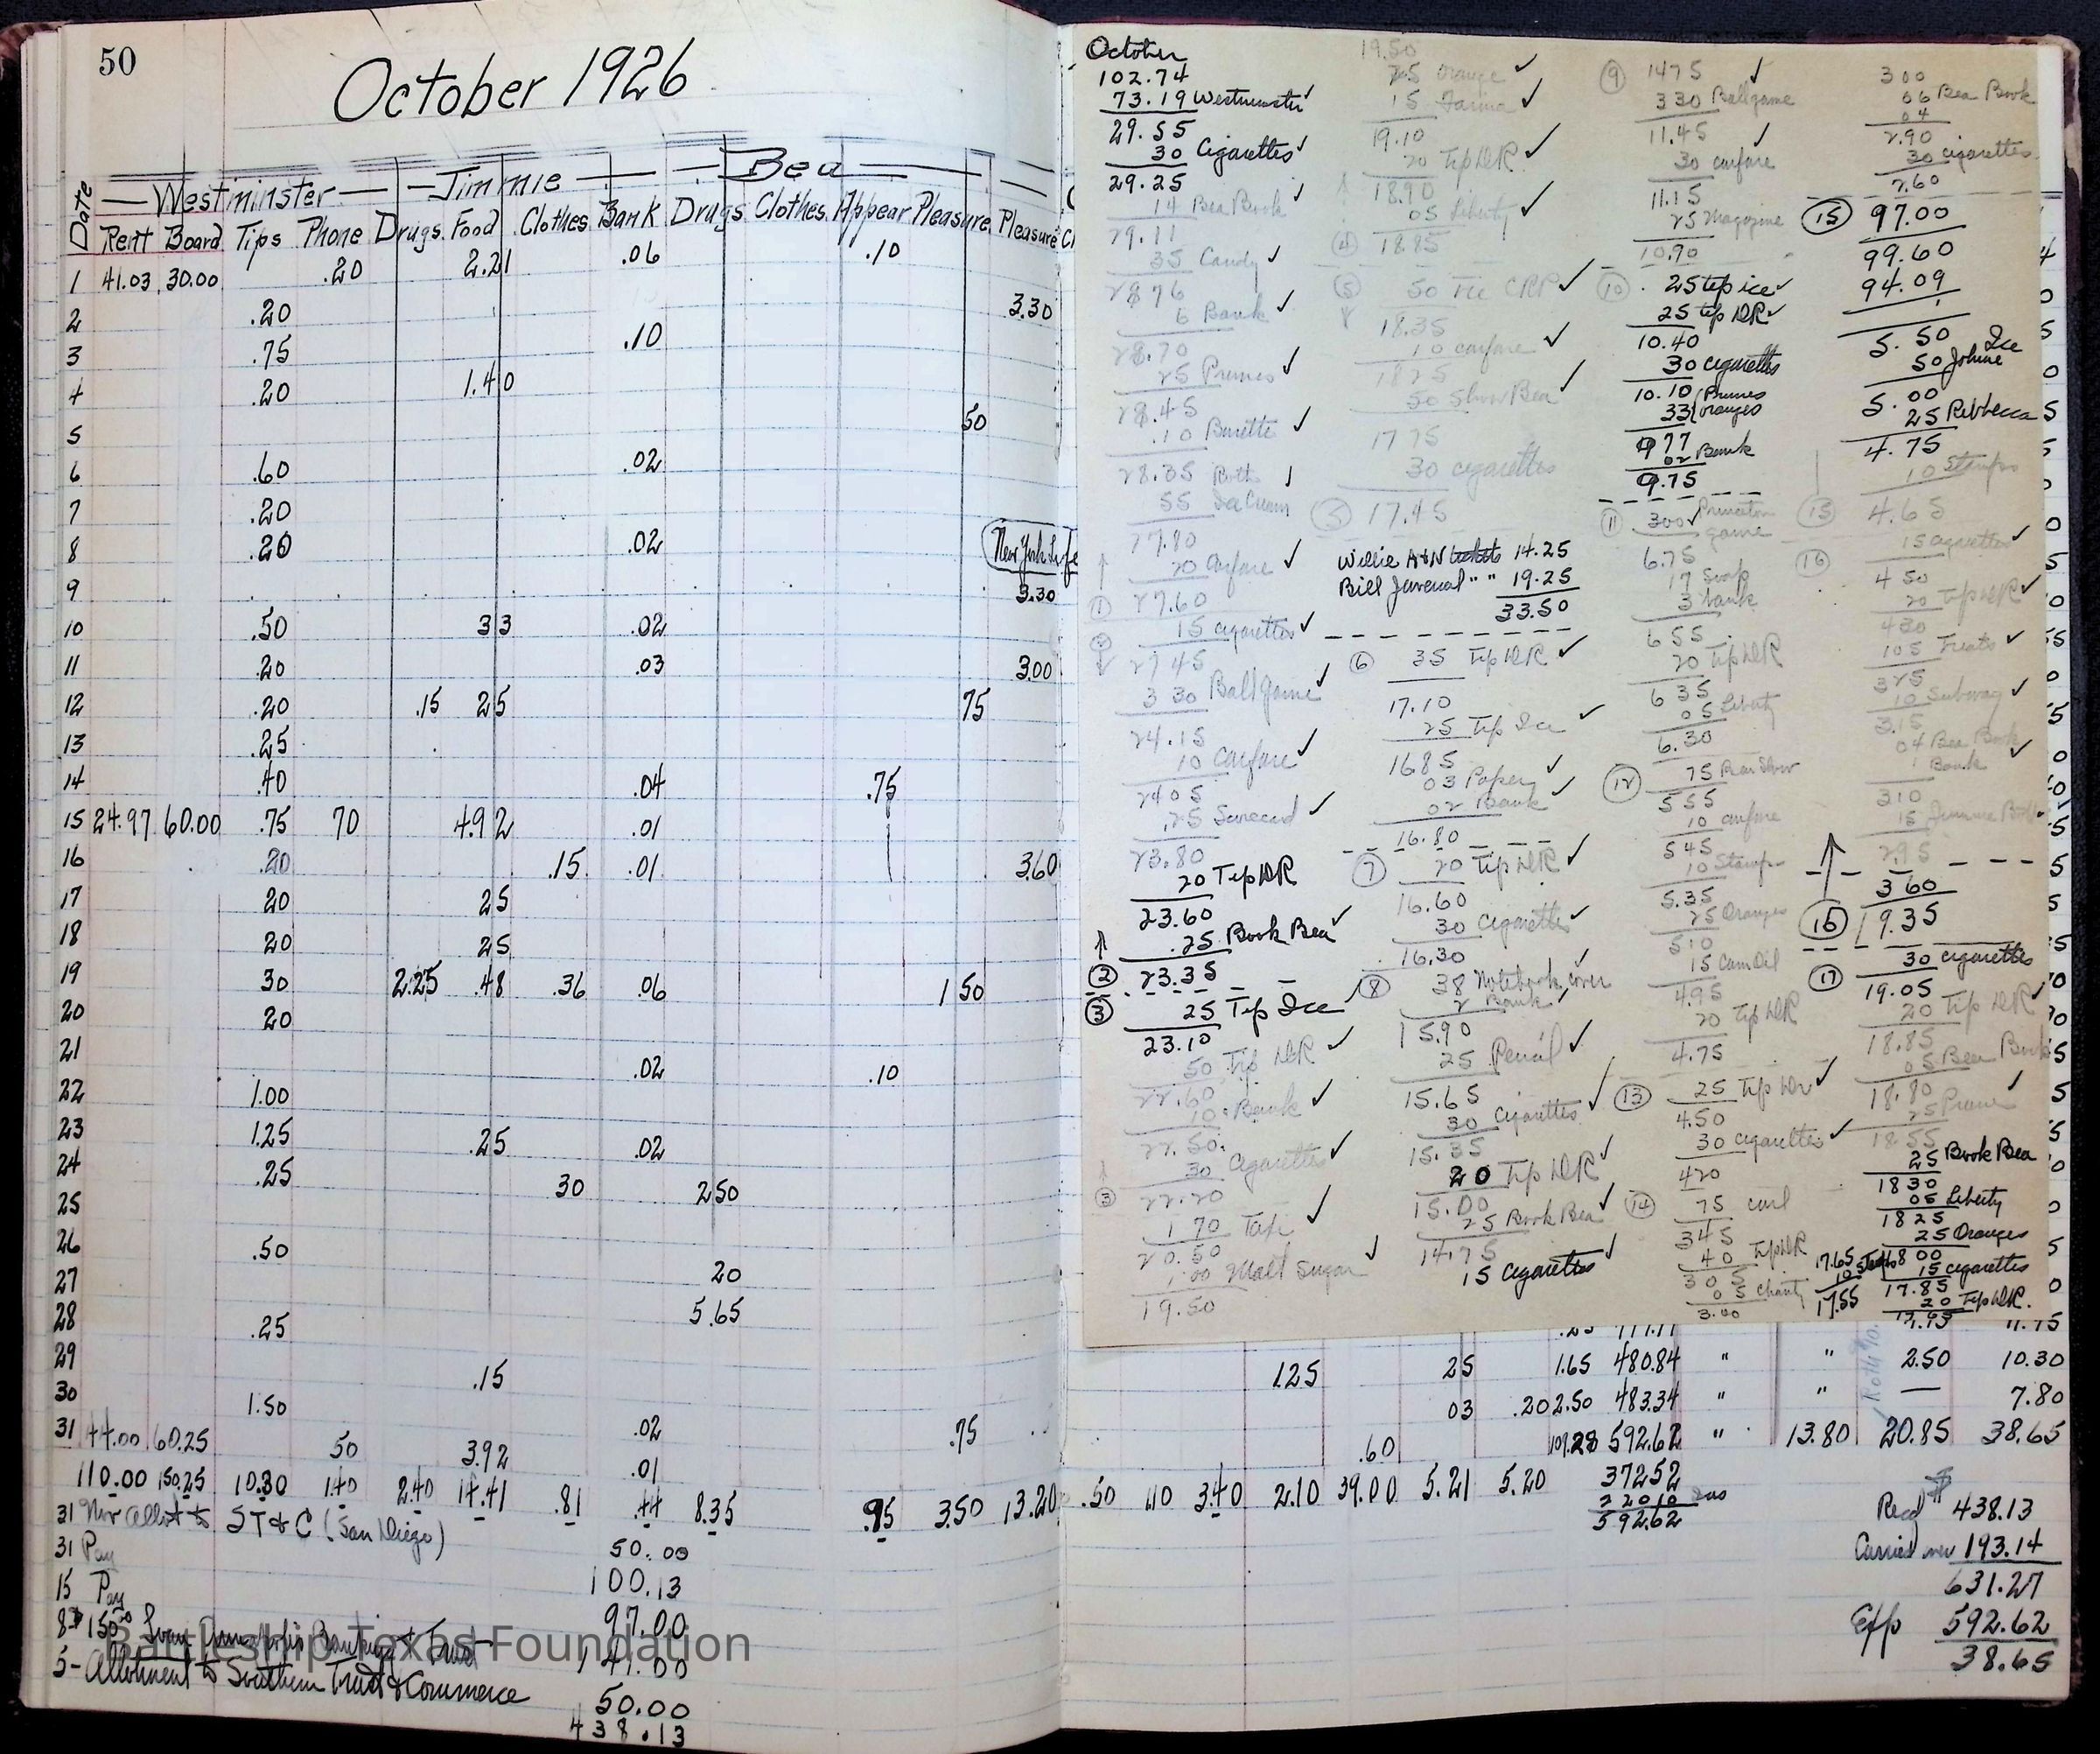 50
October 1926
Westminster Jimmie Bea
Date Rent Board Tips Phone Drugs Food Clothes Bank Drugs Clothes Appear Pleasure Pleasure
1 41.03 30.00 .20 2.21 .06 .10
2 .20 3.30
3 .75 .10
4 .20 1.40
5 50
6 .60 .02
7 .20
8 .20 .02 New York Life
9 3.30
10 .50 33 .02
11 .20 .03 3.00
12 .20 .15 25 75
13 .25
14 .40 .04 .75
15 24.97 60.00 .75 70 4.92 .01
16 .20 .15 .01 3.60
17 20 25
18 20 25
19 30 2.25 .48 .36 .06 1 50
20 20
21 .02 .10
22 1.00
23 1.25 .25 .02
24 .25
25 30 2.50
26 .50
27 20
28 .25 5.65
29 .15
30 1.50
31 44.00 60.25 50 3.92 .02 .75
.01
110.00 150.25 10.30 1.40 2.40 14.41 .81 .44 8.35 .95 3.50 13.20
31 Nov Allot to ST & C (San Diego) 50.00
31 Pay 100.13
15 Pay 97.00
8- 150.00 Loan Annapolis Banking & Trust 141.00
5- Allotment to Southern Trust & Commerce 50.00
438.13
Battleship Texas Foundation
October
102.74
73.19 Westminster
29.55
30 Cigarettes
29.25
14 Bea Book
29.11
35 Candy
28.76
6 Bank
28.70
25 Prunes
28.45
.10 Barette
28.35
55 Ice Cream
27.80
20 Carfare
1 27.60
15 cigarettes
2 27.45
3 30 Ball game
24.15
10 Carfare
24.05
.25 Scorecard
23.80
20 Tip DR
23.60
.25 Book Bea
2 23.35
3 25 Tip Ice
23.10
50 Tip DR
22.60
10 Bank
22.50
30 Cigarettes
3 22.20
1 70
20.50
1.00 Malt Sugar
19.50
19.50
25 Orange
15 Farina
19.10
20 Tip DR
18.90
05 Liberty
4 18.85
5 50
18.35
10 carfare
18.25
50 Show Bea
17.75
30 cigarettes
5 17.45
Willie A+N tickets 14.25
Bill Juvenal " " 19.25
33.50
6 35 Tip DR
17.10
25 Tip Ice
16.85
03 Paper
02 Bank
16.80
7 20 Tip DR
16.60
30 Cigarettes
16.30
8 38 Notebook cover
2 Bank
15.90
25 Pencil
15.65
30 Cigarettes
15.35
20 Tip DR
15.00
25 Book Bea
14.75
15 Cigarettes
9 14.75
3 30 Ballgame
11.45
30 carfare
11.15
25 Magazine
10.90
10 25 tip ice
25 tip DR
10.40
30 cigarettes
10.10 Prunes
33 oranges
9.77
02 Bank
9.75
11 3.00 Princeton game
6.75
17 Soap
3 bank
6.55
20 Tip DR
6.35
05 Liberty
6.30
12 75 Bea Show
5.55
10 carfare
5.45
10 Stamps
5.35
25 Oranges
5.10
15 Cam Oil
4.95
20 Tip DR
4.75
13 25 Tip Dr
4.50
30 cigarettes
4.20
14 75 curl
3.45
40 Tip DR
3.05
05 Charity
3.00
3.00
06 Bea Book
04
2.90
30 cigarettes
2.60
15 97.00
99.60
94.09
5.50 Ice
50 Johnie
5.00
25 Rebbecca
4.75
10 Stamps
15 4.65
16 15 cigarettes
4.50
20 Tip DR
4.30
1.05 Treats
3.25
10 Subway
3.15
04 Bea Book
1 Bank
3.10
15 Jimmie
2.95
3 60
16 19.35
17 30 cigarettes
19.05
20 Tip DR
18.85
05 Bea Book
18.80
25 Prune
18.55
25 Book Bea
18.30
05 Liberty
18.25
25 Oranges
18.00
15 cigarettes
17.85
20 Tip DR.
17.65
17.65
10
17.55
1.25 25 1.65 480.84 " " 2.50 10.30
03 .20 2.50 483.34 " " — 7.80
.60 109.28 592.62 " 13.80 20.85 38.65
.50 1.10 3.40 2.10 39.00 5.21 5.20 372.52
220.10 Ins
592.62
Recd $ 438.13
Carried over 193.14
631.27
Exp 592.62
38.65